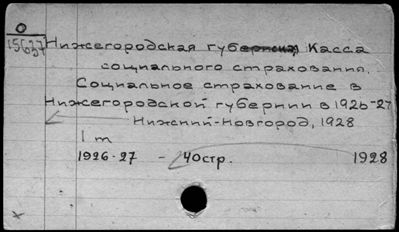 О
15637
Нижегородская губернская Касса
социального страхования.
Социальное страхование в
Нижегородской губернии в 1926-27
Нижний-Новгород, 1928
1 т
1926-27 - 40стр. 1928